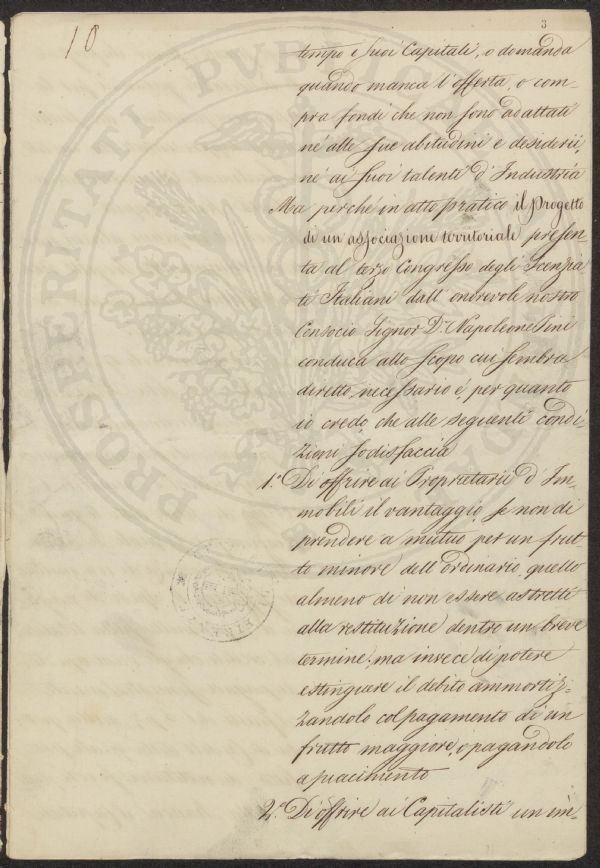 3
10
tempo i suoi Capitali, o domanda
quando manca l'offerta, o com-
pra fondi che non sono adattati
né alle sue abitudini e desiderii,
né ai suoi talenti d'Industria
Ma perché in atto pratico il progetto
di un associazione territoriale presen-
ta al terzo Congresso degli Scenzia
ti Italiani dall'onorevole nostro
Consocio Signor Dr. Napoleone Pini
conduca allo scopo cui sembra
diretto, necessario é, per quanto
io credo, che alle seguenti condi-
zioni sodisfaccia
1.° Di offrire ai Proprietarii d'Im-
mobili il vantaggio se non di
prendere a mutuo per un frut-
to minore dell'ordinario, quello
almeno di non essere astretti
alla restituzione dentro un breve
termine; ma invece di potere
estinguere il debito ammortiz-
zandolo col pagamento di un
frutto maggiore, o pagandolo
a piacimento
2.° Di offrire ai Capitalisti un im-
PROSPERITATI PUB